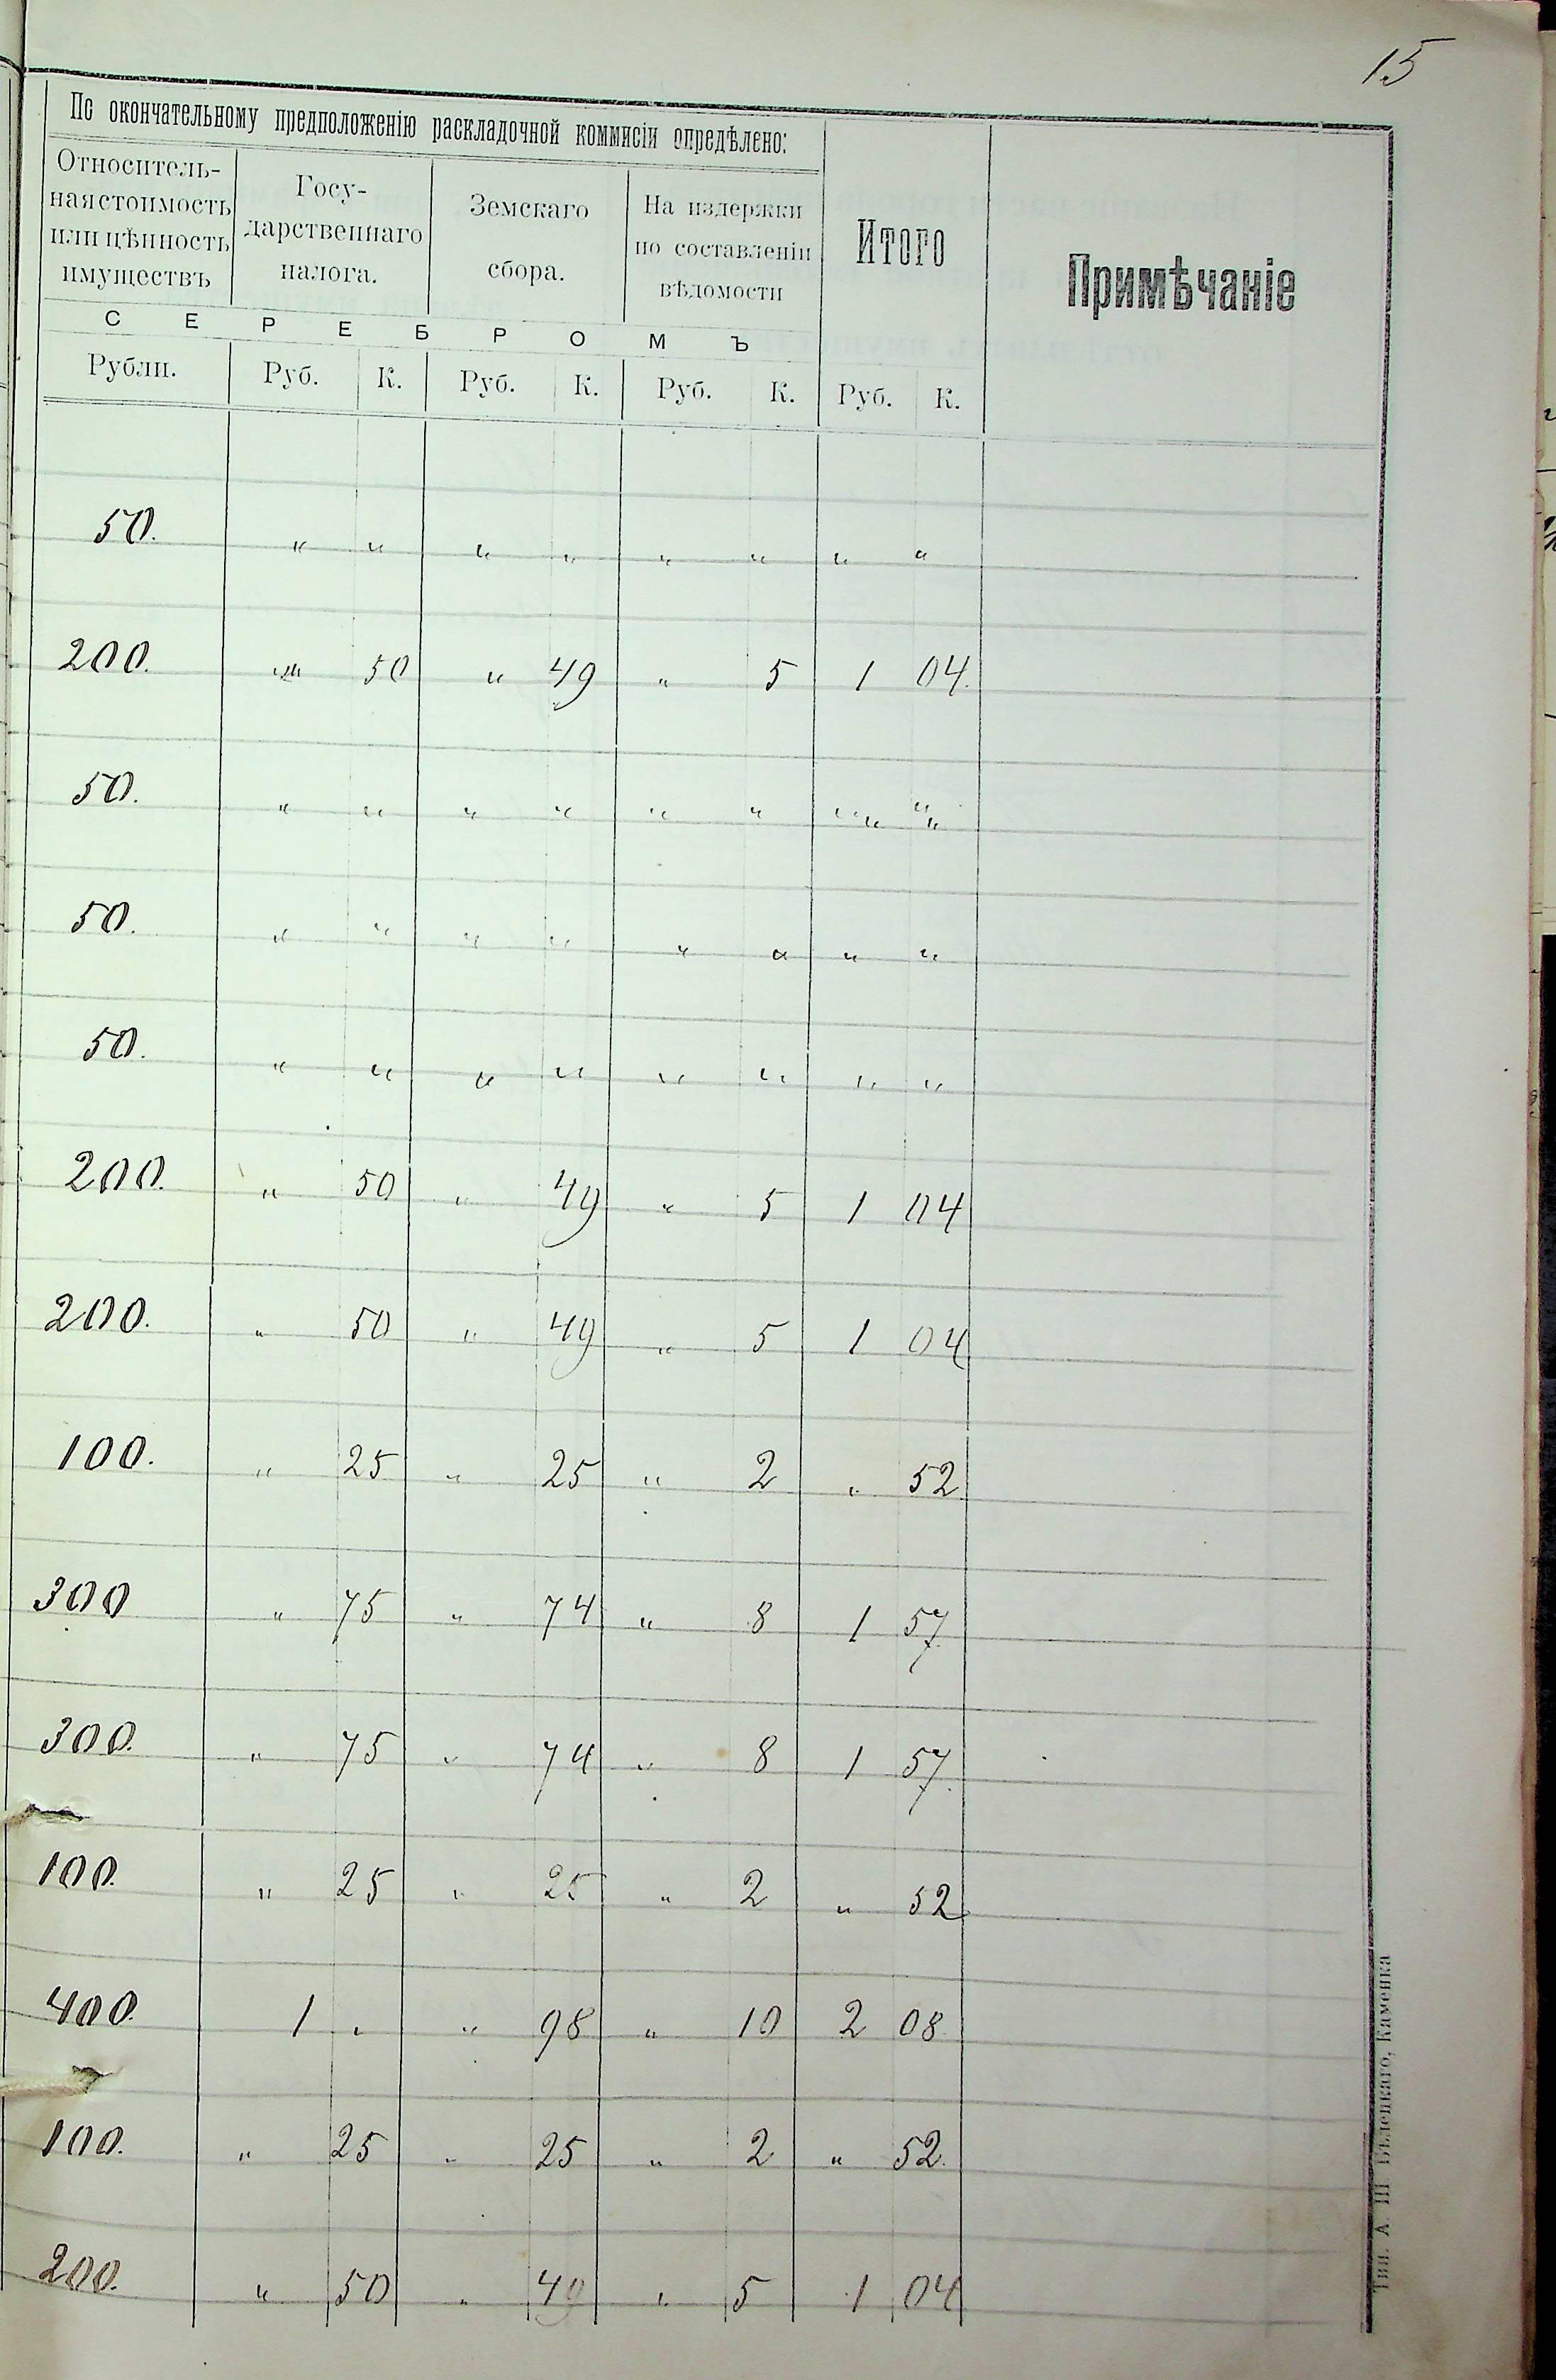 15
По окончательному предположенію раскладочной коммисіи опредѣлено:
Относитель-
ная стоимость
или цѣнность
имуществъ
Госу-
дарственнаго
налога.
Земскаго
сбора.
На издержки
по составленіи
вѣдомости
Итого
Примѣчаніе
С Е Р Е Б Р О М Ъ
Рубли. Руб. К. Руб. К. Руб. К. Руб. К.
50. " " " " " " " "
200. " 50 " 49 " 5 1 04.
50. " " " " " " " " " "
50. " " " " " " " "
50. " " " " " " " "
200. " 50 " 49 " 5 1 04
200. " 50 " 49 " 5 1 04
100. " 25 " 25 " 2 " 52
300 " 75 " 74 " 8 1 57
300. " 75 " 74 " 8 1 57.
100. " 25 " 25 " 2 " 52
400. 1 " " 98 " 10 2 08
100. " 25 " 25 " 2 " 52.
200. " 50 " 49 " 5 1 04
Тип. А. Ш. Бѣлецкаго, Каменка